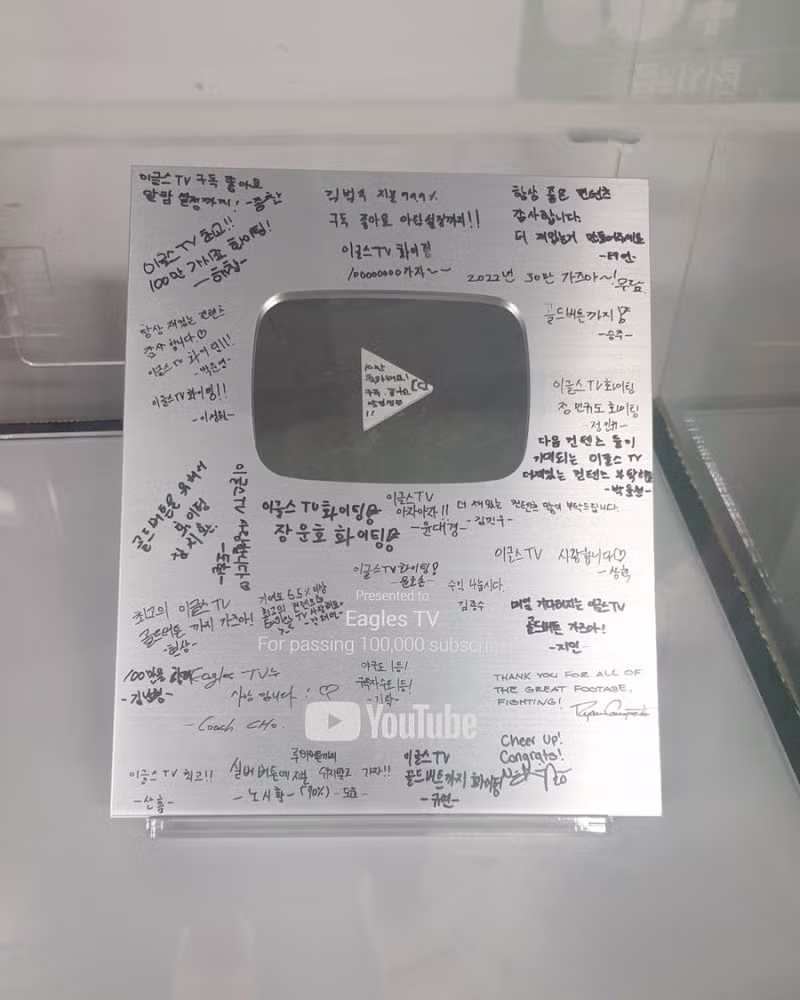 이글스TV 구독 좋아요
알람 설정까지!
이글스TV 최고!!
100만 가시죠 화이팅!
김범수 지분 99.9%
구독 좋아요 알림설정까지!!
이글스TV 화이팅
10000000가자~~
항상 좋은 컨텐츠
감사합니다.
더 재밌는거 만들어주세요
2022년 30만 가즈아~!
골드버튼까지
-승주-
항상 재밌는 컨텐츠
감사합니다♡
이글스TV 화이팅!!!
-박윤현-
이글스TV 화이팅!!
이글스TV 화이팅
정민규도 화이팅
-정민규-
다음 컨텐츠 들이
기대되는 이글스 TV
더재밌는 컨텐츠 부탁해요
구독.좋아요
골드버튼은
화이팅
이글스TV 사랑합니다♡
이글스 TV 화이팅
장운호 화이팅
이글스TV
아자아자!!
-윤대경-
더 재밌는 컨텐츠 많이 부탁드립니다.
-김민우-
이글스TV 사랑합니다♡
-상혁
이글스TV 화이팅
수익 나눕시다.
김종수
매일 기다려지는 이글스TV
골드버튼 가즈아!
-지민-
최고의 이글스 TV
골드버튼 까지 가즈아!
기여도 5.5% 이상
최고의 컨텐츠
Eagles TV 사랑해요
Presented to
Eagles TV
For passing 100,000
100만을 향해
Eagles TV는
사랑 입니다! ♡
-Coach CHO.
야구도 1등!
구독자수도 1등!
THANK YOU FOR ALL OF
THE GREAT FOOTAGE,
FIGHTING!
YouTube
Cheer UP!
Congrats!
이글스TV 최고!!
실버 버튼에
가자!!
-노시환-
(90%)
이글스TV
골드버튼까지 화이팅
-규연-